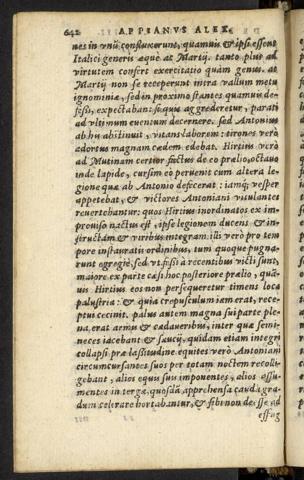 642 APPIANVS ALEX.
nes in vnũ consluxerunt, quamuis & ipsi essent
Italici generis æque at Martij. tanto plus ad
virtutem confert exercitatio quàm genus. at
Martij non se receperunt intra vallum metu
ignominiæ, sed in proximo stantes quamuis de-
fessi, expectabant siquis aggrederetur, parati
ad vltimum euentum decernere. sed Antonius
ab his abstinuit, vitans laborem: tirones verò
adortus magnam cædem edebat. Hirtius verò
ad Mutinam certior factus de eo prælio, octauo
inde lapide, cursim eò peruenit cum altera le-
gione quæ ab Antonio defecerat: iamq; vesper
appetebat, & victores Antoniani vitulantes
reuertebantur: quos Hirtius inordinatos ex im-
prouiso nactus est, ipse legionem ducens & in-
structam & viribus integram. illi verò pro tem
pore instauratis ordinibus, tum quoque pugna-
runt egregie, sed vt fessi à recentibus victi sunt,
maiore ex parte cæsi hoc posteriore prælio, quã-
uis Hirtius eos non persequeretur timens loca
palustria: & quia crepusculum iam erat, rece-
ptui cecinit. palus autem magna sui parte ple-
na erat armis & cadaueribus, inter quæ semi-
neces iacebant & saucij, quidam etiam integri
collapsi præ lassitudine. equites verò Antoniani
circumcursantes suos per totam noctem recolli-
gebant, alios equis suis imponentes, alios assu-
mentes in terga, quosdã apprehensa cauda gra-
dum celerare hortabantur, & sibi non deesse ad
effug